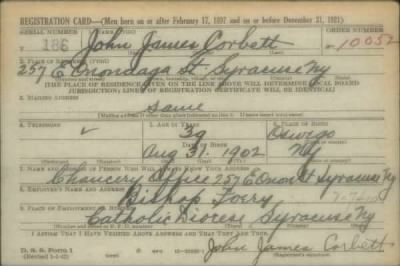 REGISTRATION CARD—(Men born on or after February 17, 1897 and on or before December 31, 1921)
SERIAL NUMBER 1. NAME (Print) ORDER NUMBER
V 186 John James Corbett 10052
2. PLACE OF RESIDENCE (Print)
257 E Onondaga St Syracuse Ny
[THE PLACE OF RESIDENCE GIVEN ON THE LINE ABOVE WILL DETERMINE LOCAL BOARD
JURISDICTION; LINE 2 OF REGISTRATION CERTIFICATE WILL BE IDENTICAL]
3. MAILING ADDRESS
same
4. TELEPHONE 5. AGE IN YEARS 6. PLACE OF BIRTH
39 Oswego
DATE OF BIRTH
Aug 31. 1902 NY
7. NAME AND ADDRESS OF PERSON WHO WILL ALWAYS KNOW YOUR ADDRESS
Chancery Office 257 E Onon St Syracuse Ny
8. EMPLOYER'S NAME AND ADDRESS
Bishop Foery
9. PLACE OF EMPLOYMENT OR BUSINESS
Catholic Diocese Syracuse Ny
I AFFIRM THAT I HAVE VERIFIED ABOVE ANSWERS AND THAT THEY ARE TRUE.
D. S. S. Form 1
John James Corbett